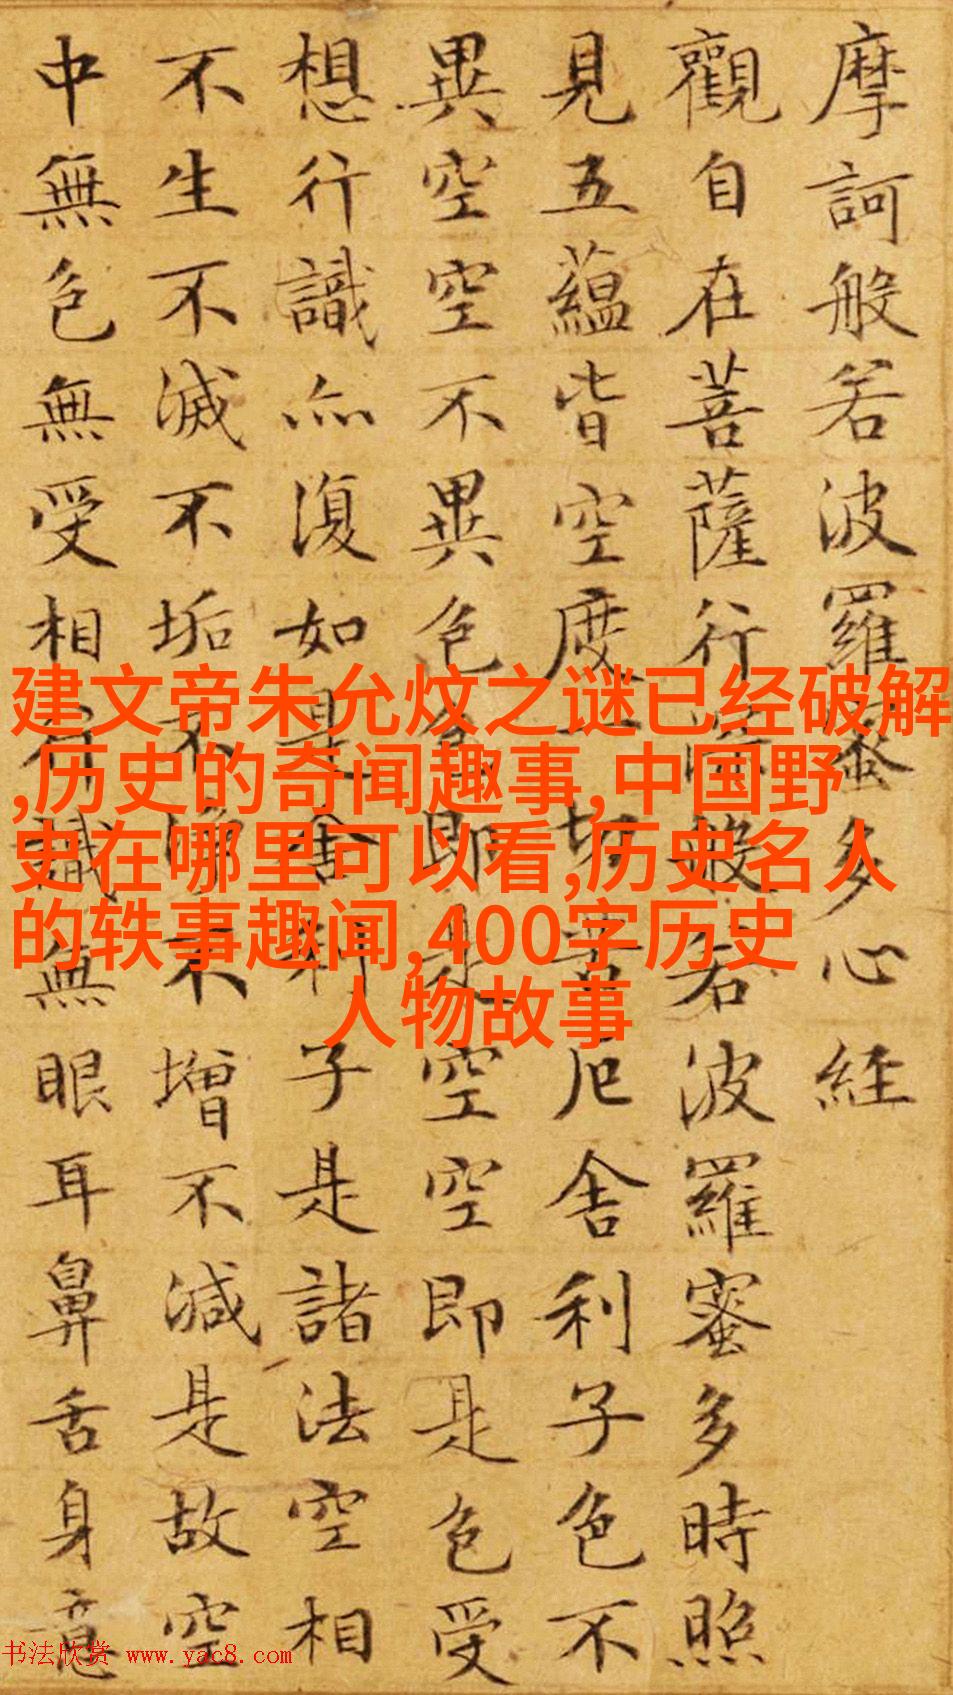 摩訶般若波羅蜜多心経
觀自在菩薩行深般若波羅蜜多時照
見五蘊皆空度一切苦厄舍利子色不
異空空不異色色即是空空即是色受
想行識亦復如是舍利子是諸法空相
不生不滅不垢不淨不增不減是故空
中無色無受相行識無眼耳鼻舌身意
建文帝朱允炆之谜已经破解
,历史的奇闻趣事,中国野
史在哪里可以看,历史名人
的轶事趣闻,400字历史
人物故事
书法欣赏 www.yac8.com